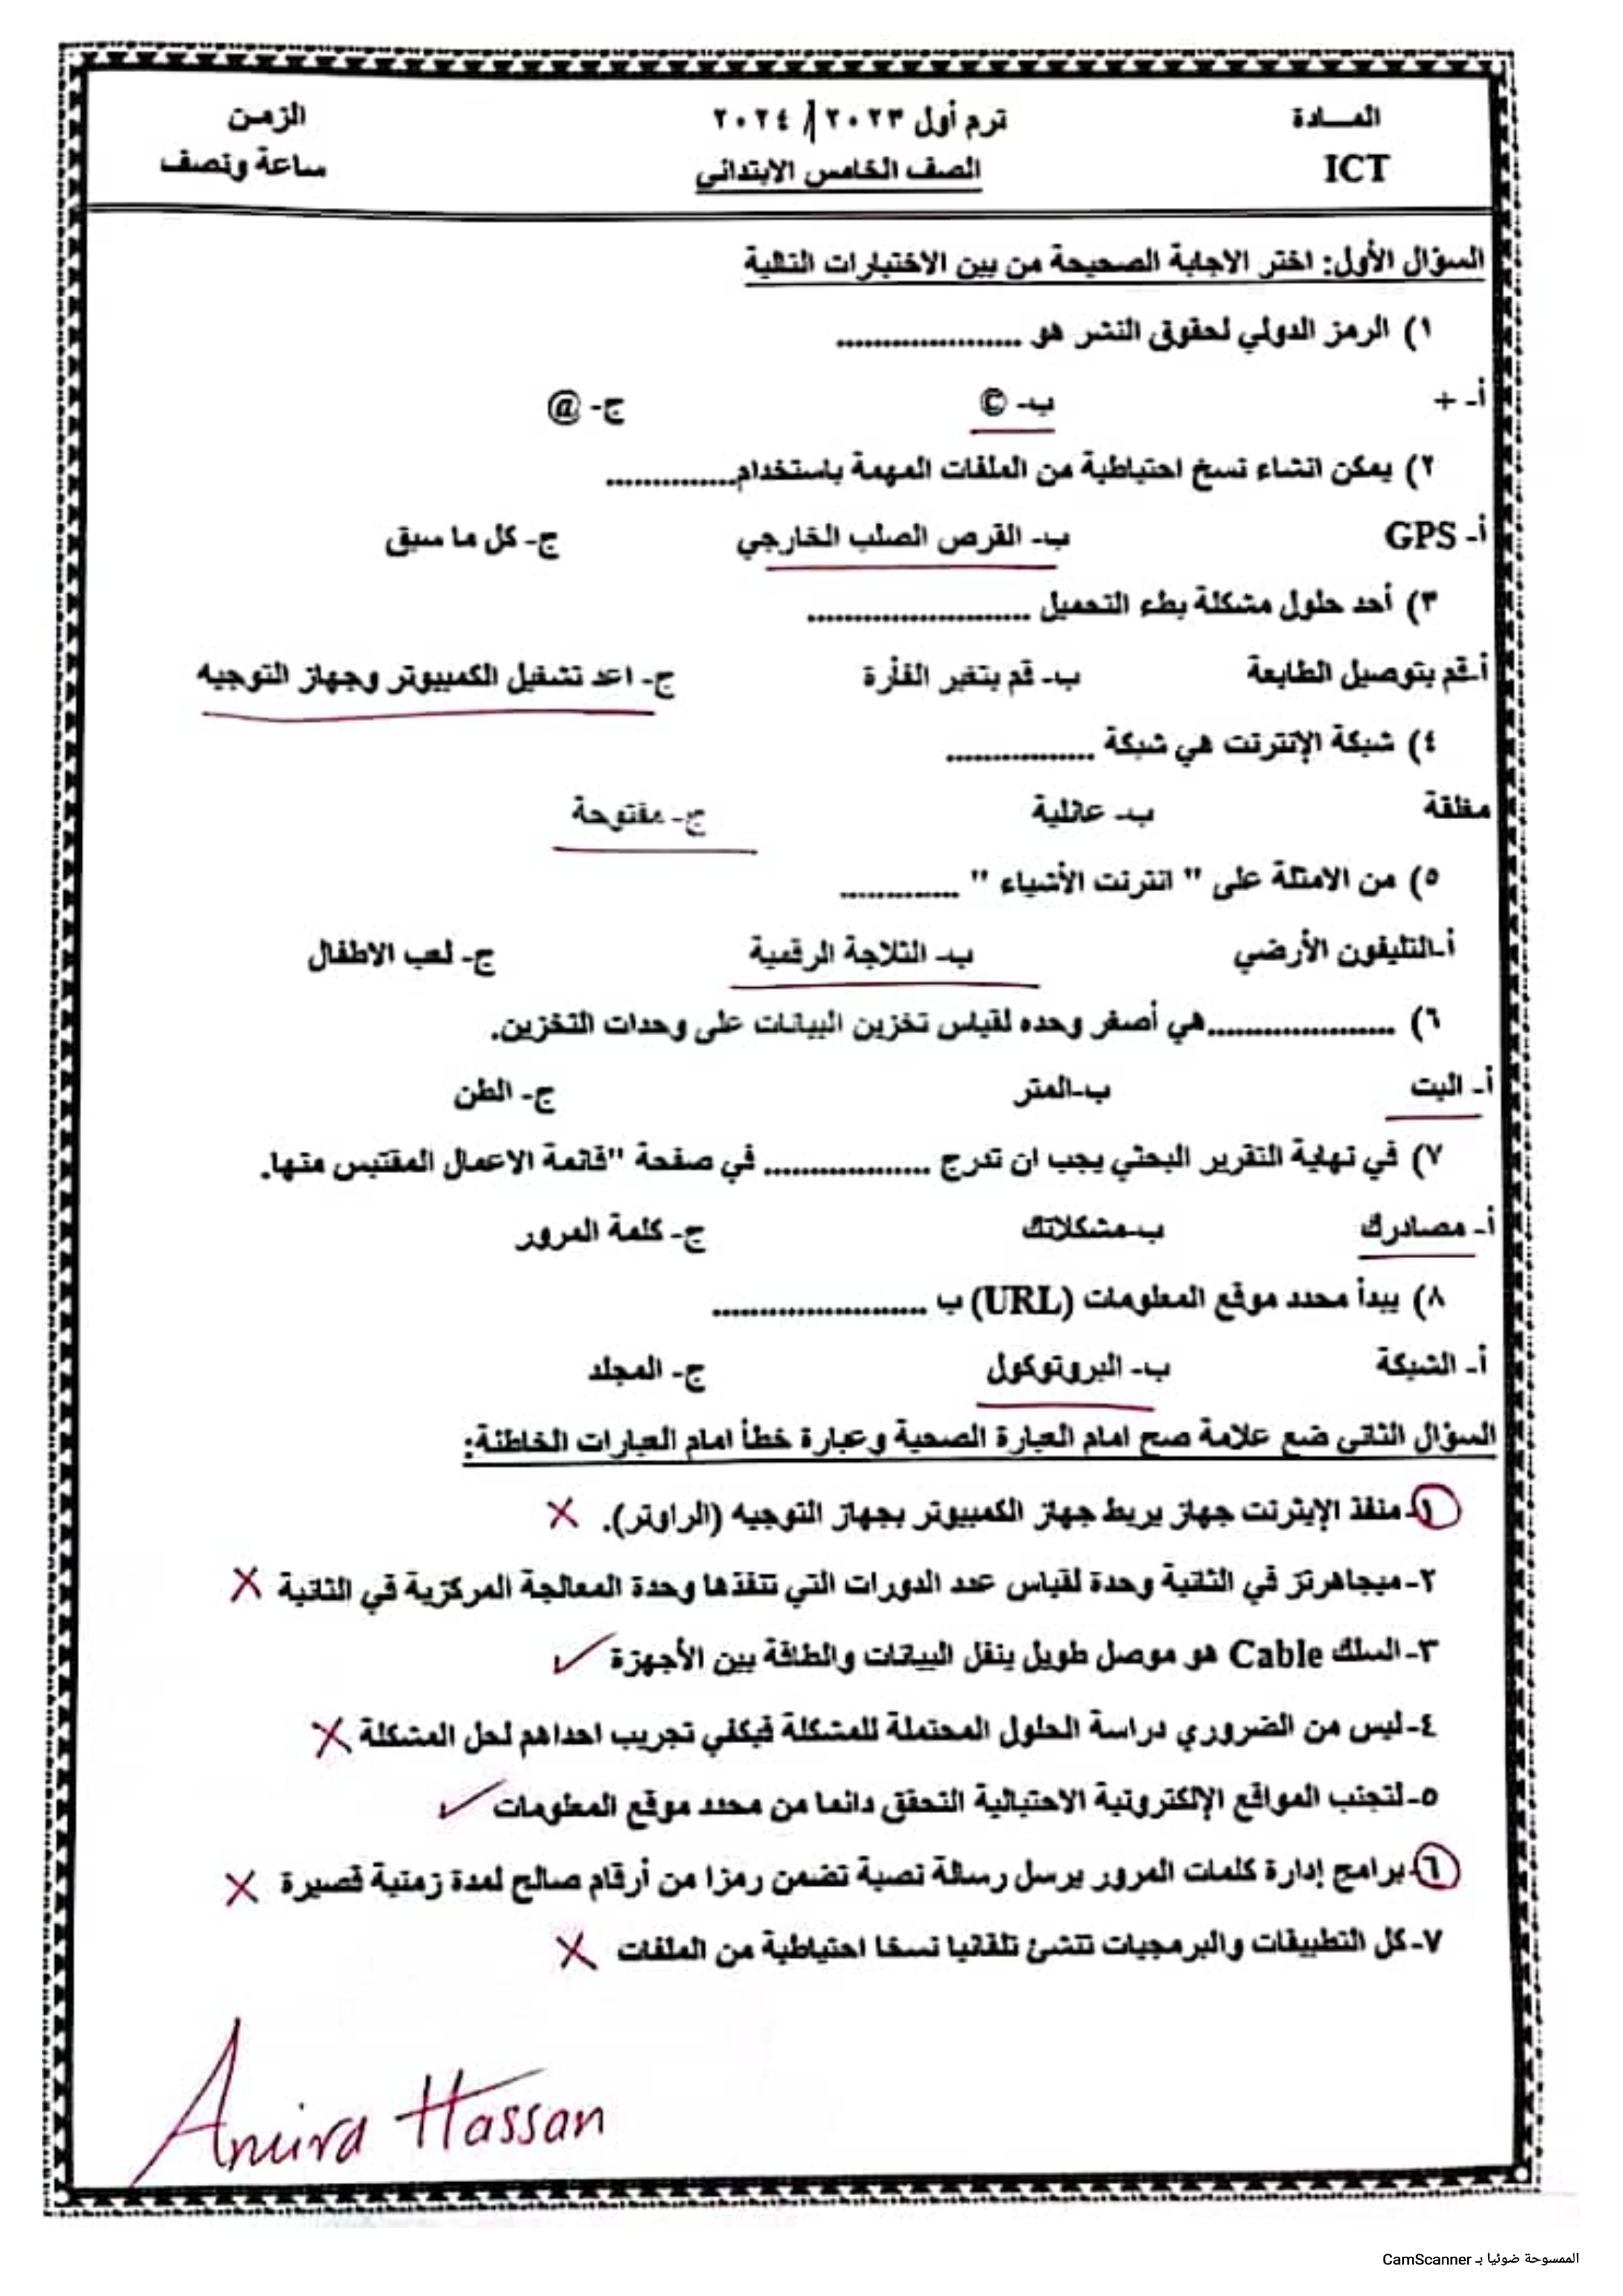 المـــادة ترم أول ٢٠٢٣ / ٢٠٢٤ الزمن
ICT الصف الخامس الابتدائي ساعة ونصف
السؤال الأول: اختر الاجابة الصحيحة من بين الاختيارات التالية
١) الرمز الدولي لحقوق النشر هو ....................
أ- + ب- © ج- @
٢) يمكن انشاء نسخ احتياطية من الملفات المهمة باستخدام..............
أ- GPS ب- القرص الصلب الخارجي ج- كل ما سبق
٣) أحد حلول مشكلة بطء التحميل ........................
أ-قم بتوصيل الطابعة ب- قم بتغير الفأرة ج- اعد تشغيل الكمبيوتر وجهاز التوجيه
٤) شبكة الإنترنت هي شبكة ................
مغلقة ب- عائلية ج- مفتوحة
٥) من الامثلة على " انترنت الأشياء " .............
أ-التليفون الأرضي ب- الثلاجة الرقمية ج- لعب الاطفال
٦) ....................هي أصغر وحده لقياس تخزين البيانات على وحدات التخزين.
أ- البت ب-المتر ج- الطن
٧) في نهاية التقرير البحثي يجب ان تدرج .................. في صفحة "قائمة الاعمال المقتبس منها.
أ- مصادرك ب-مشكلاتك ج- كلمة المرور
٨) يبدأ محدد موقع المعلومات (URL) ب .......................
أ- الشبكة ب- البروتوكول ج- المجلد
السؤال الثاني ضع علامة صح امام العبارة الصحية وعبارة خطأ امام العبارات الخاطئة:
١-منفذ الإيثرنت جهاز يربط جهاز الكمبيوتر بجهاز التوجيه (الراوتر). ✗
٢-ميجاهرتز في الثانية وحدة لقياس عدد الدورات التي تنفذها وحدة المعالجة المركزية في الثانية ✗
٣-السلك Cable هو موصل طويل ينقل البيانات والطاقة بين الأجهزة ✓
٤-ليس من الضروري دراسة الحلول المحتملة للمشكلة فيكفي تجريب احداهم لحل المشكلة ✗
٥-لتجنب المواقع الإلكترونية الاحتيالية التحقق دائما من محدد موقع المعلومات ✓
٦-برامج إدارة كلمات المرور يرسل رسالة نصية تضمن رمزا من أرقام صالح لمدة زمنية قصيرة ✗
٧-كل التطبيقات والبرمجيات تنشئ تلقائيا نسخا احتياطية من الملفات ✗
Amira Hassan
الممسوحة ضوئيا بـ CamScanner